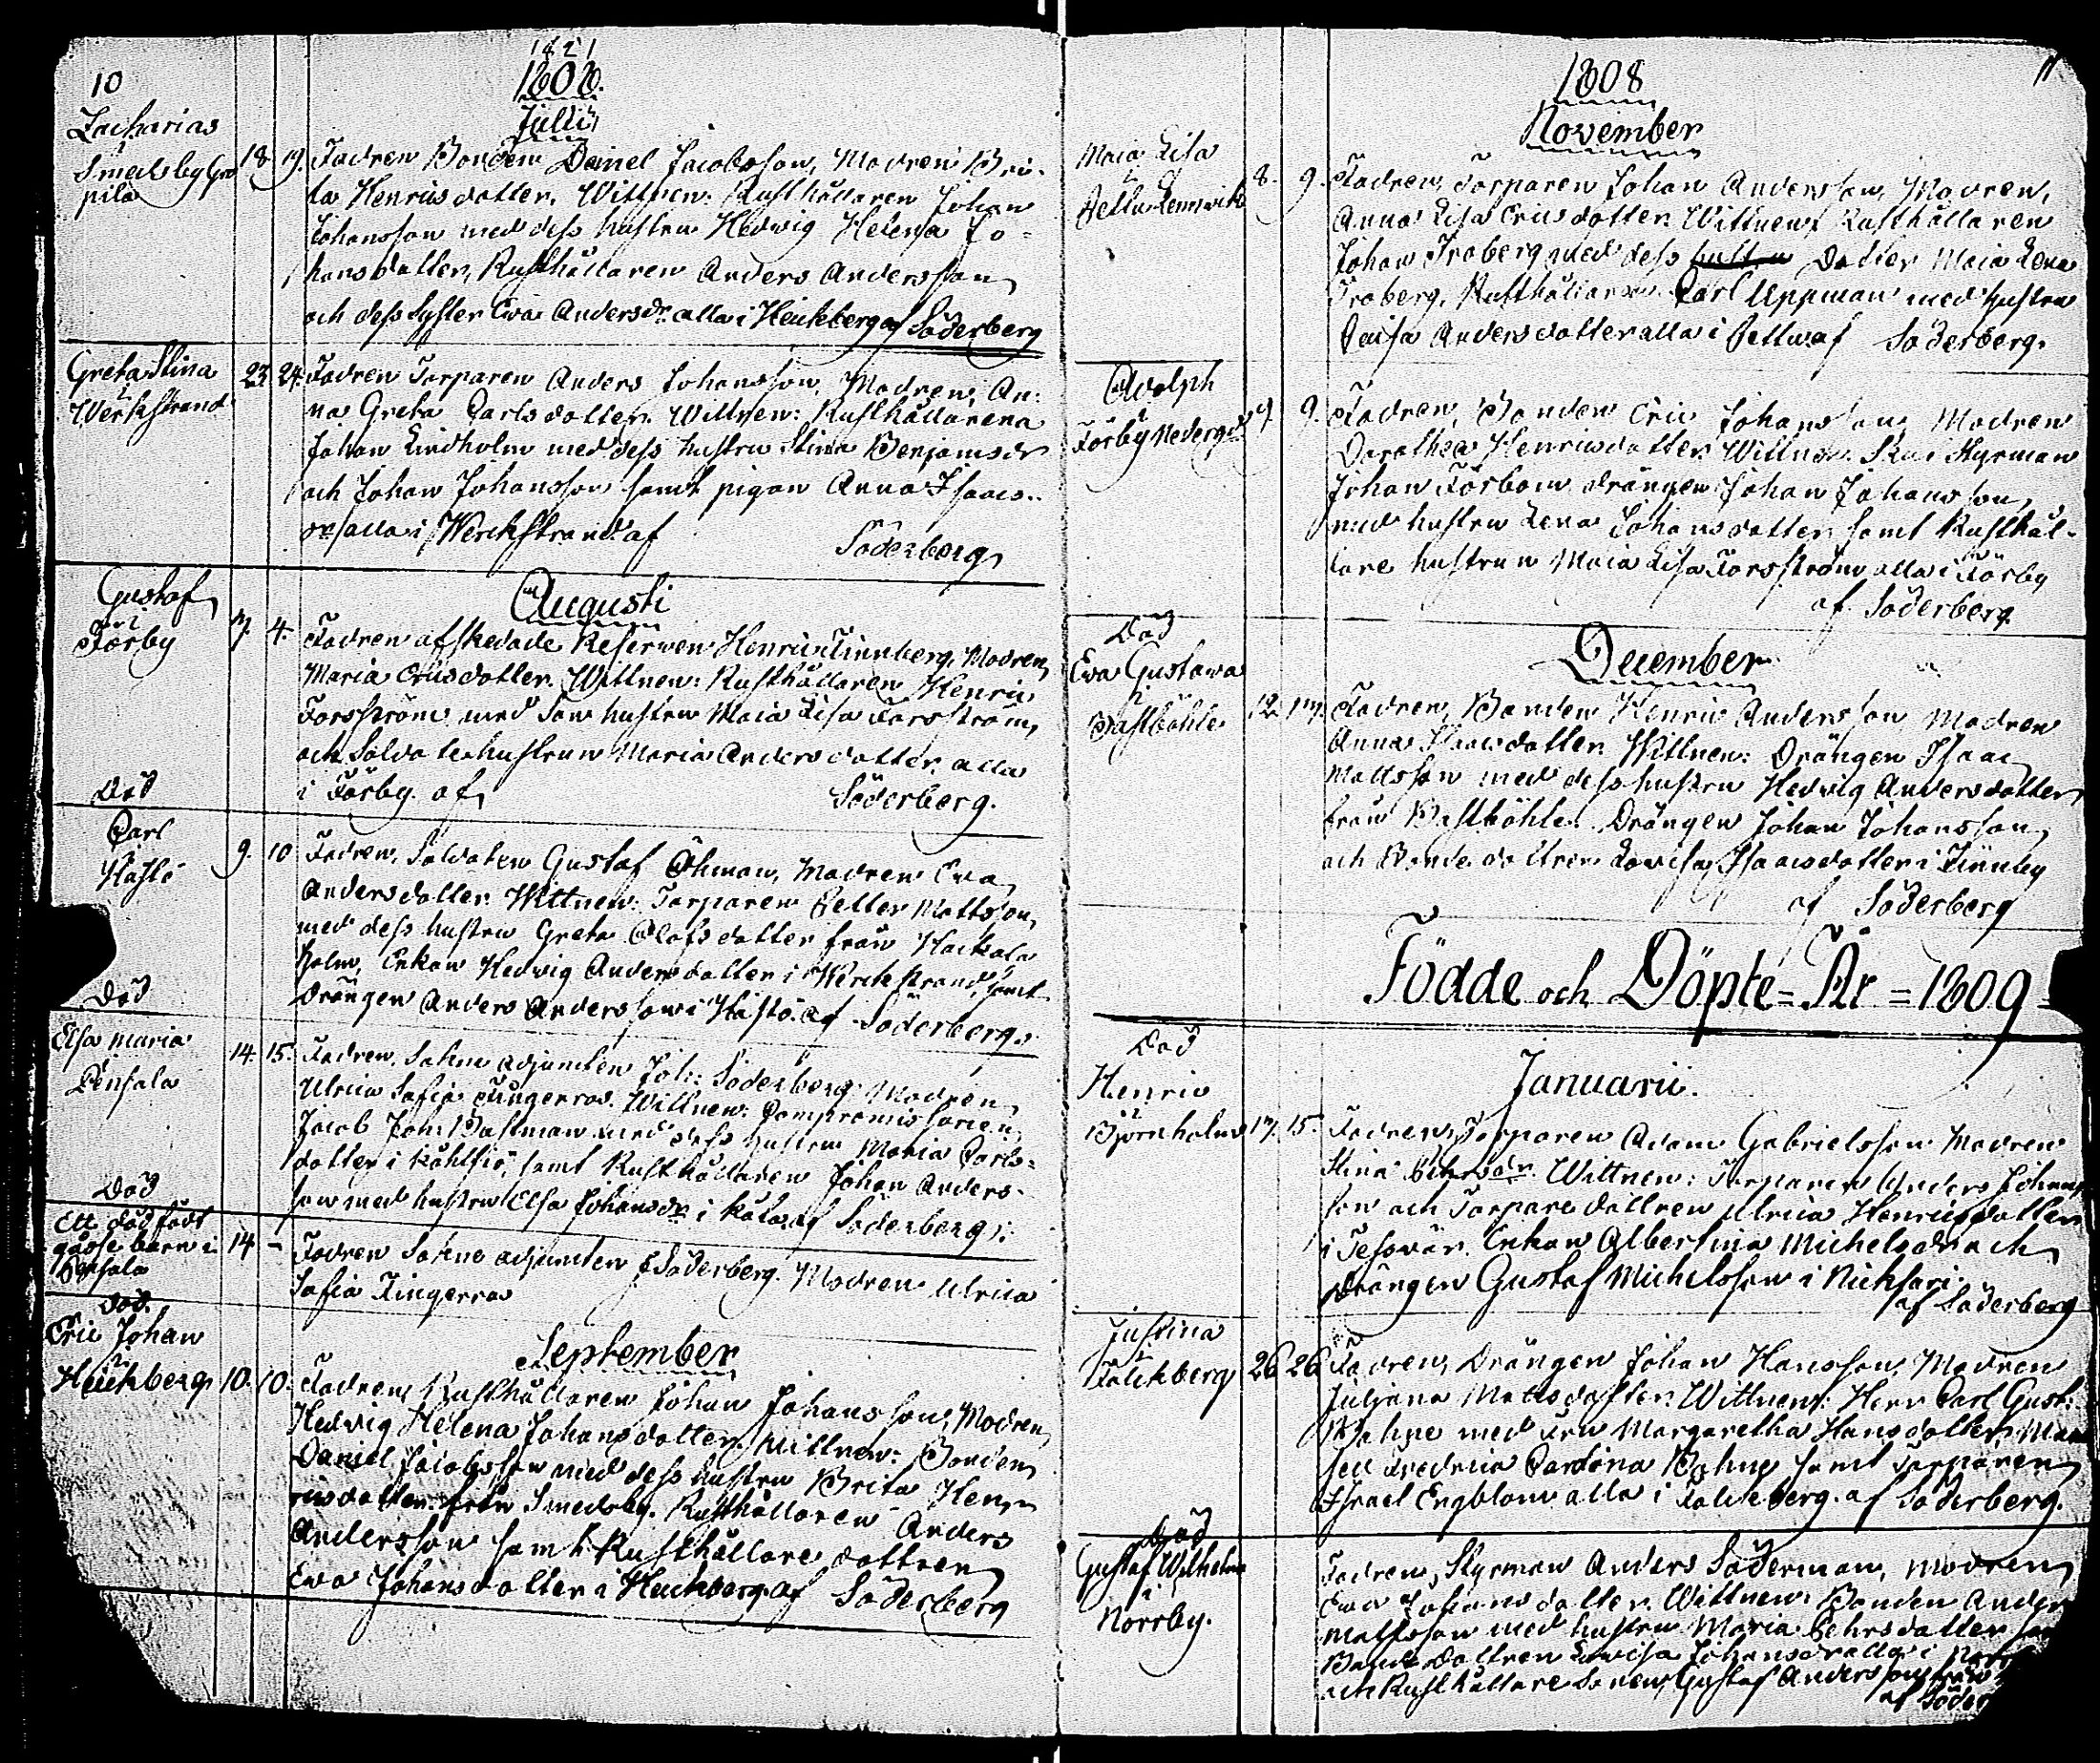 10
1821
1808.
Julii
Zacharias
i
Smedsby Gro
pila
18. 19. Fadren Bonden Daniel Jacobsson, Modren Bri-
ta Henricsdotter. Wittnen: Rusthållaren Johan
Johansson med dess hustru Hedwig Helena Jo-
hansdotter, Rusthållaren Anders Andersson
och dess Syster Ewa Andersdr alla i Heickberg af Söderberg
Greta Stina
i
Werkstrand
23. 24. Fadren Torparen Anders Johansson, Modren An-
na Greta Carlsdotter. Wittnen: Rusthållarena
Johan Lindholm med dess hustru Stina Benjamsdr
och Johan Johansson samt pigan Anna Isaacs-
dr alla i Werckstrand af Söderberg
Augusti
Gustaf
i
Förby
Död
3. 4. Fadren afskedade Reserven Henric Finnberg, Modren
Maria Ericsdotter. Wittnen: Rusthållaren Henric
Forsström med Son hustru Maia Lisa Forsström,
och Soldatehustrun Maria Andersdotter alla
i Förby af Söderberg.
Carl
i
Hästö
Död
9. 10 Fadren, Soldaten Gustaf Öhman, Modren Ewa
Andersdotter. Wittnen: Torparen Petter Mattsson,
med dess hustru Greta Olofsdotter från Hackala
holm, Enkan Hedwig Andersdotter i Werckstrand, samt
Drängen Anders Andersson i Hästö af Söderberg.
Elsa Maria
i
Pensala
Död
14. 15. Fadren, Sokne adjuncten Joh: Söderberg. Modren
Ulrica Sofia Fingerroos. Wittnen: Compromissarien
Jacob Joh: Bastman med dess hustru Maria Carls-
dotter i Kåhlsiö, samt Rusthållaren Johan Anders-
son med hustru Elsa Johansdr i Kåla af Söderberg.
Ett dödfödt
gosse barn i
Pensala
död.
14 - Fadren Sokne adjuncten J Söderberg. Modren Ulrica
Sofia Fingerroos
September
Eric Johan
i
Heickberg
10. 10. Fadren, Rusthållaren Johan Johansson, Modren
Hedwig Helena Johansdotter. Wittnen: Bonden
Daniel Jacobsson med dess hustru Brita Hen-
ricsdotter från Smedsby. Rusthållaren Anders
Andersson samt Rusthållare dottren
Ewa Johansdotter i Heickberg af Söderberg
11
1808
November
Maja Lisa
i
8. 9. Fadren, Torparen Johan Andersson, Modren,
Anna Lisa Ericsdotter. Wittnen: Rusthållaren
Johan Froberg med dess hustru Dotter Maia Lena
Froberg. Rusthållaren Carl Uppman med hustru
Caisa Andersdotter alla i Pettu af Söderberg.
Adolph
i
Förby Nedergd
9. 9. Fadren, Bonden Eric Johansson, Modren
Dorothea Henricsdotter. Wittnen: Styrman
Johan Förbom, drängen Johan Johansson,
med hustru Lena Johansdotter samt Rusthål-
lare hustrun Maia Lisa Forsström alla i Förby
af Söderberg
December
Död
Ewa Gustawa
i
Bastböhle
12. 13. Fadren, Bonden Henric Andersson Modren
Anna Isaacsdotter. Wittnen: Drängen Isaac
Mattsson med dess hustru Hedwig Andersdotter
från Bastböhle. Drängen Johan Johansson,
och Bonde dottren Lovisa Isaacsdotter i Finnby
af Söderberg
Födde och Döpte = År = 1809
Januarii.
Död
Henric
i
Björnholm
13. 15. Fadren, Torparen Adam Gabrielsson Modren
Stina Pehrsdr. Wittnen: Torparen Anders Johans-
son och Torpare dottren Ulrica Henricsdotter
i Tessvär. Enkan Albertina Michelsdr och
Drängen Gustaf Michelsson i Nicksari.
af Söderberg
Justina
i
Falckberg
26 26 Fadren, Drängen Johan Hansson, Modren
Juljana Mattsdotter. Wittnen: Herr Carl Gust:
Bahne med Fru Margaretha Hansdotter, Mam
sell Fredrica Carolina Bahne samt Torparen
Israel Engblom alla i Falckberg. af Söderberg.
Död
Gustaf Wilhelm
i
Norrby.
Fadren, Styrman Anders Söderman, Modren
Ewa Johansdotter. Wittnen: Bonden Anders
Mattsson med hustru Maria Pehrsdotter
Bonde dottren Lovisa Johansdr alla i Norr
och Rusthållare Sonen, Gustaf Andersson
af Söder